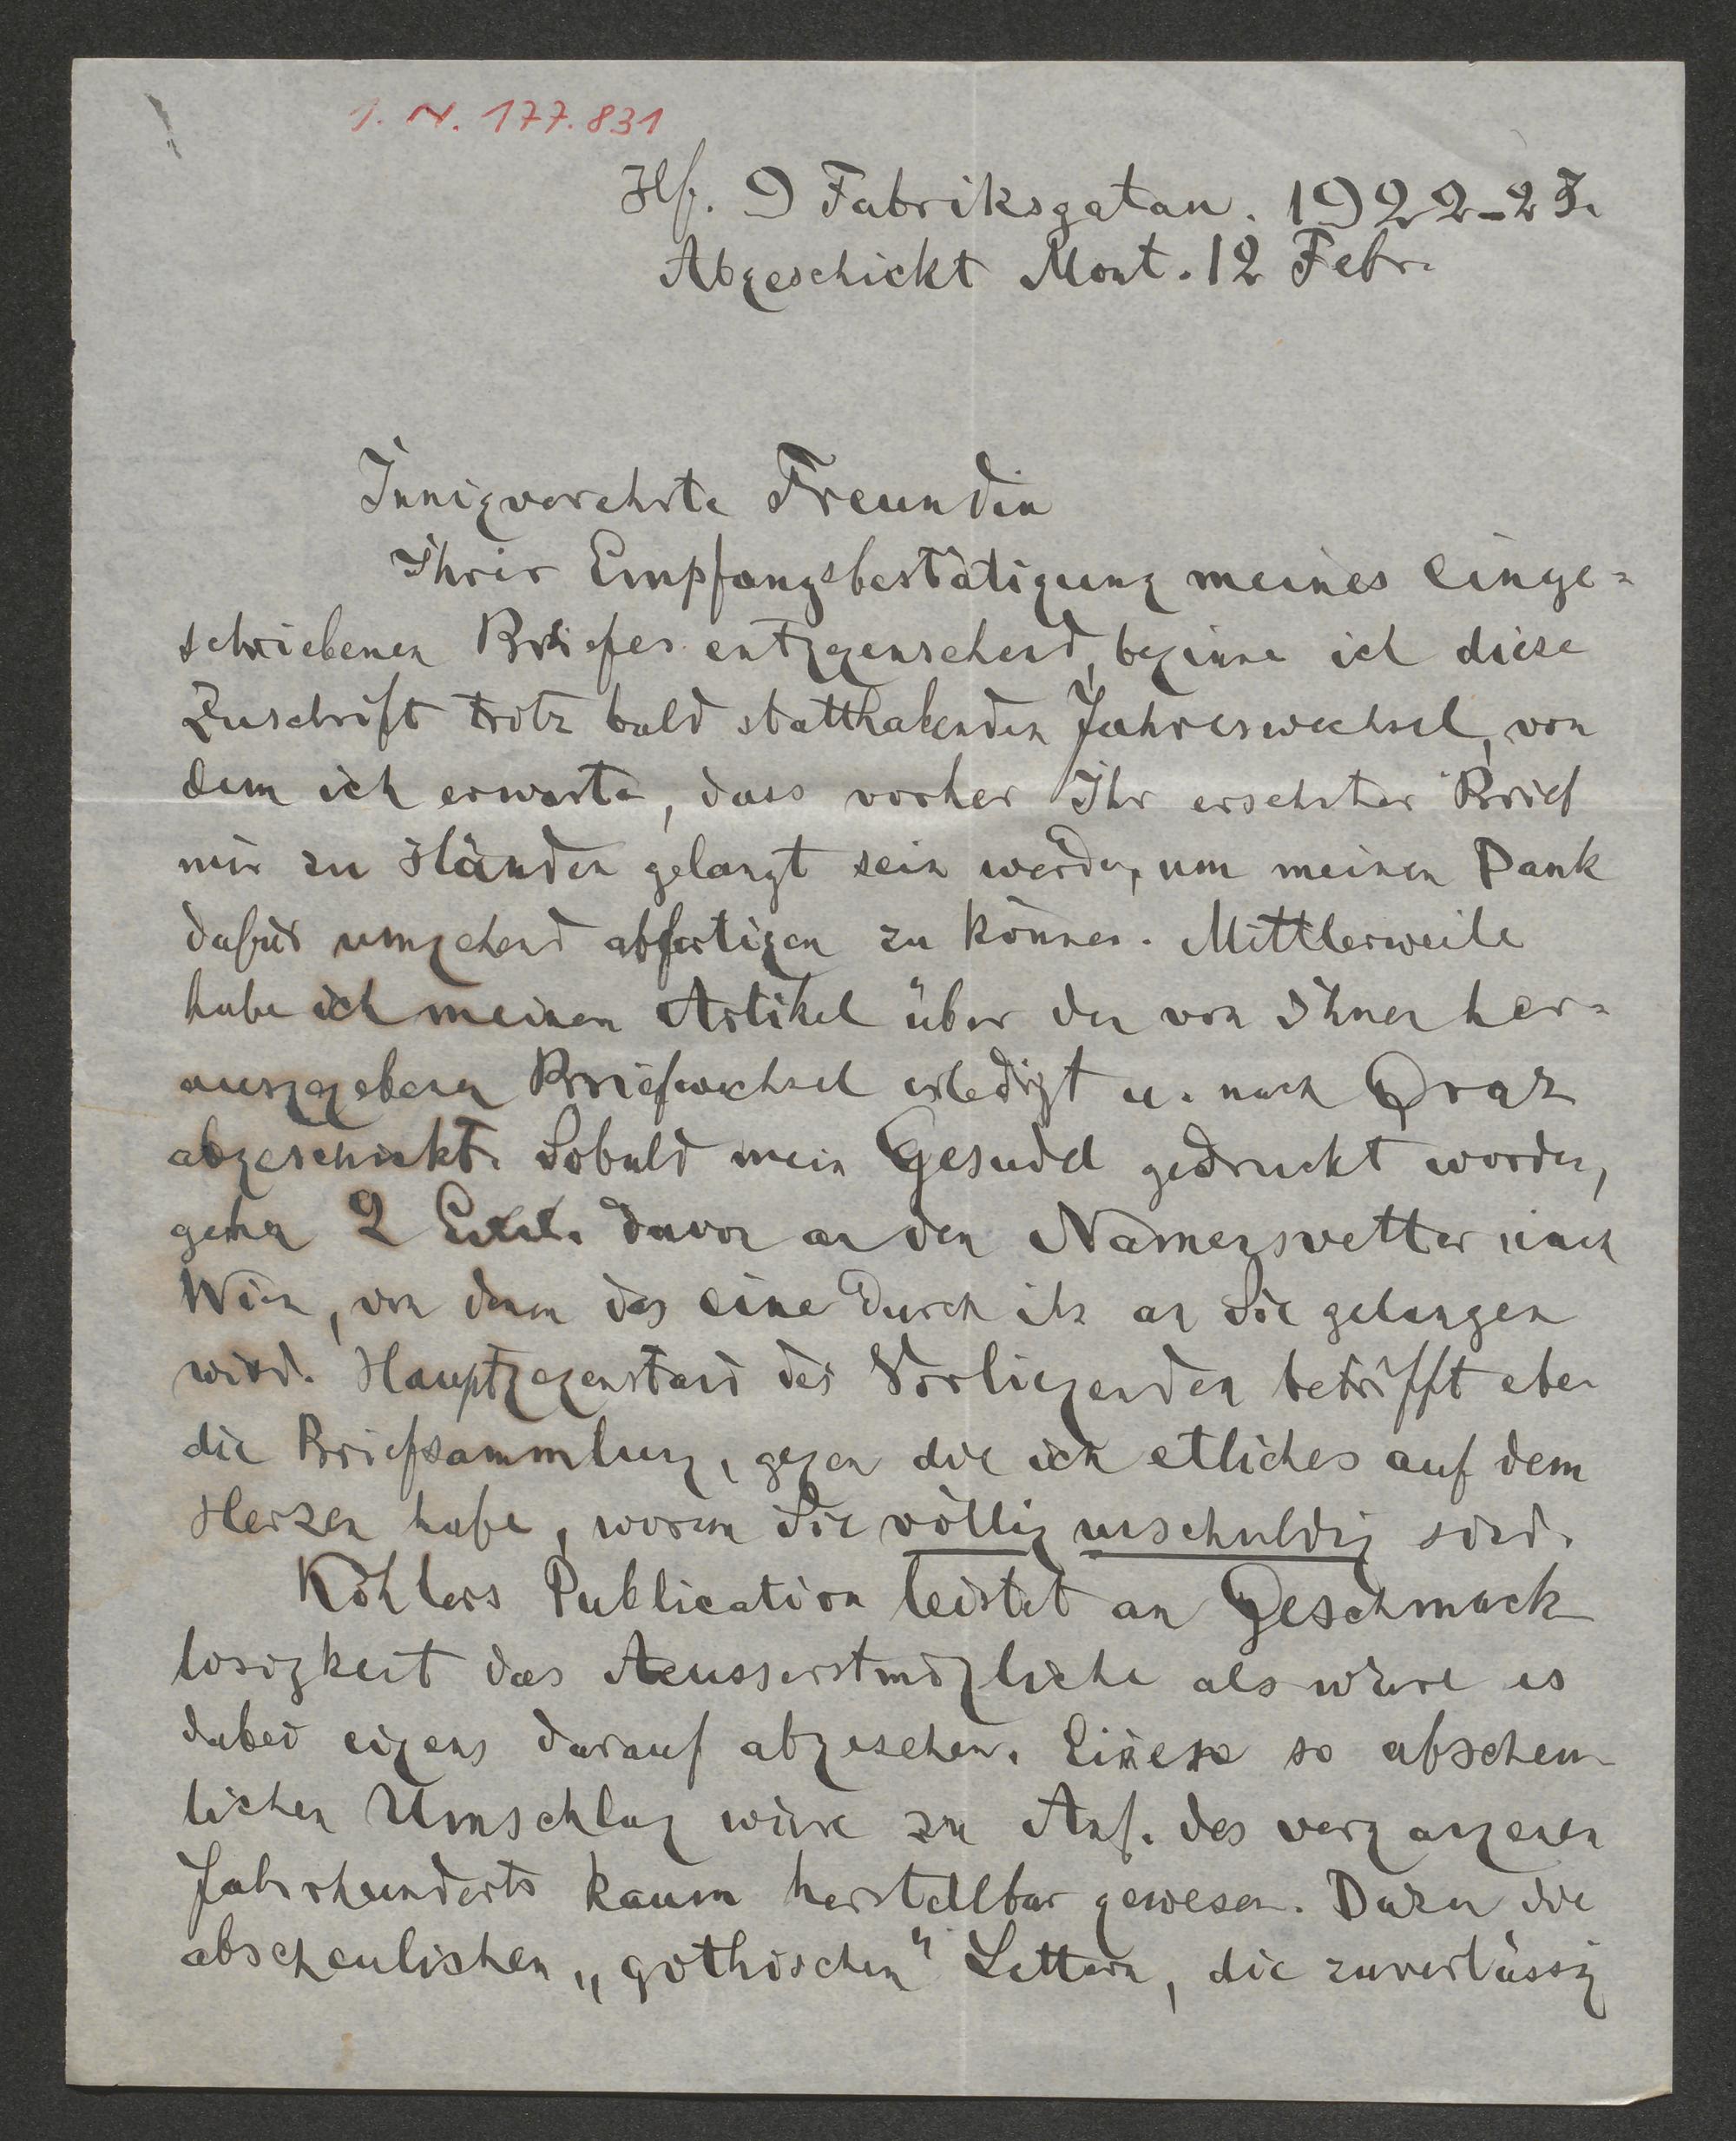 I. N. 177.831
Hf. 9 Fabriksgatan. 1922-23.
Abgeschickt Mont. 12 Febr.
Innigverehrte Freundin
Ihrer Empfangsbestätigung meines einge-
schriebenen Briefes entggensehend, beginne ich diese
Zuschrift trotz bald statthabenden Jahreswechsel, von
dem ich erwarte, dass vorher Ihr ersehnter Brief
mir zu Händen gelangt sein werde, um meinen Dank
dafür umgehend abfertigen zu können. Mittlerweile
habe ich meinen Artikel über den von Ihnen her-
ausggebenen Briefwechsel erledigt u. nach Graz
abgeschickt. Sobald mein Gesudel gedruckt worden,
gehen 2 Exx. davon an den Namensvetter nach
Wien, von denen das eine durch ihn an Sie gelangen
wird. Hauptgegenstand des Vorliegenden betrifft eben
die Briefsammlung, gegen die ich etliches auf dem
Herzen habe, woran Sie völlig unschuldig sind.
Köhlers Publication leistet an Geschmack
losigkeit das Aeusserstmögliche als wäre es
dabei eigens darauf abgesehen. Einen so abscheu-
lichen Umschlag wäre zu Anf. des vergangenen
Jahrhunderts kaum herstellbar gewesen. Dazu die
abscheulichen „gothischen" Lettern, die zuverlässig